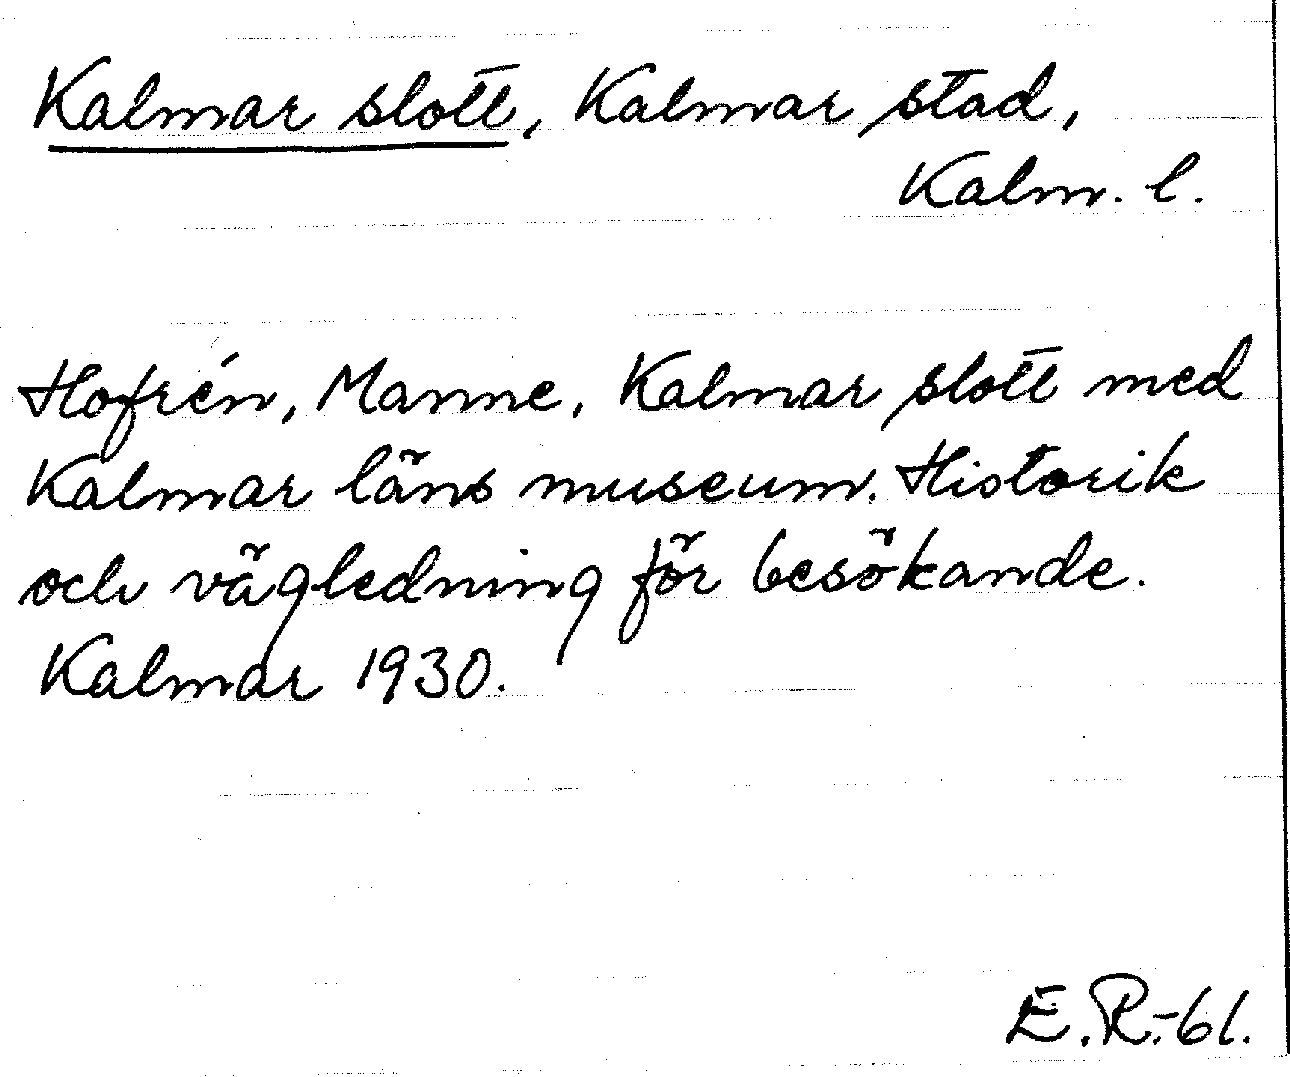 Kalmar slott, Kalmar stad,
Kalm. l.
Hofrén, Manne, Kalmar slott med
Kalmar läns museum. Historik
och vägledning för besökande.
Kalmar 1930.
E.R.-61.